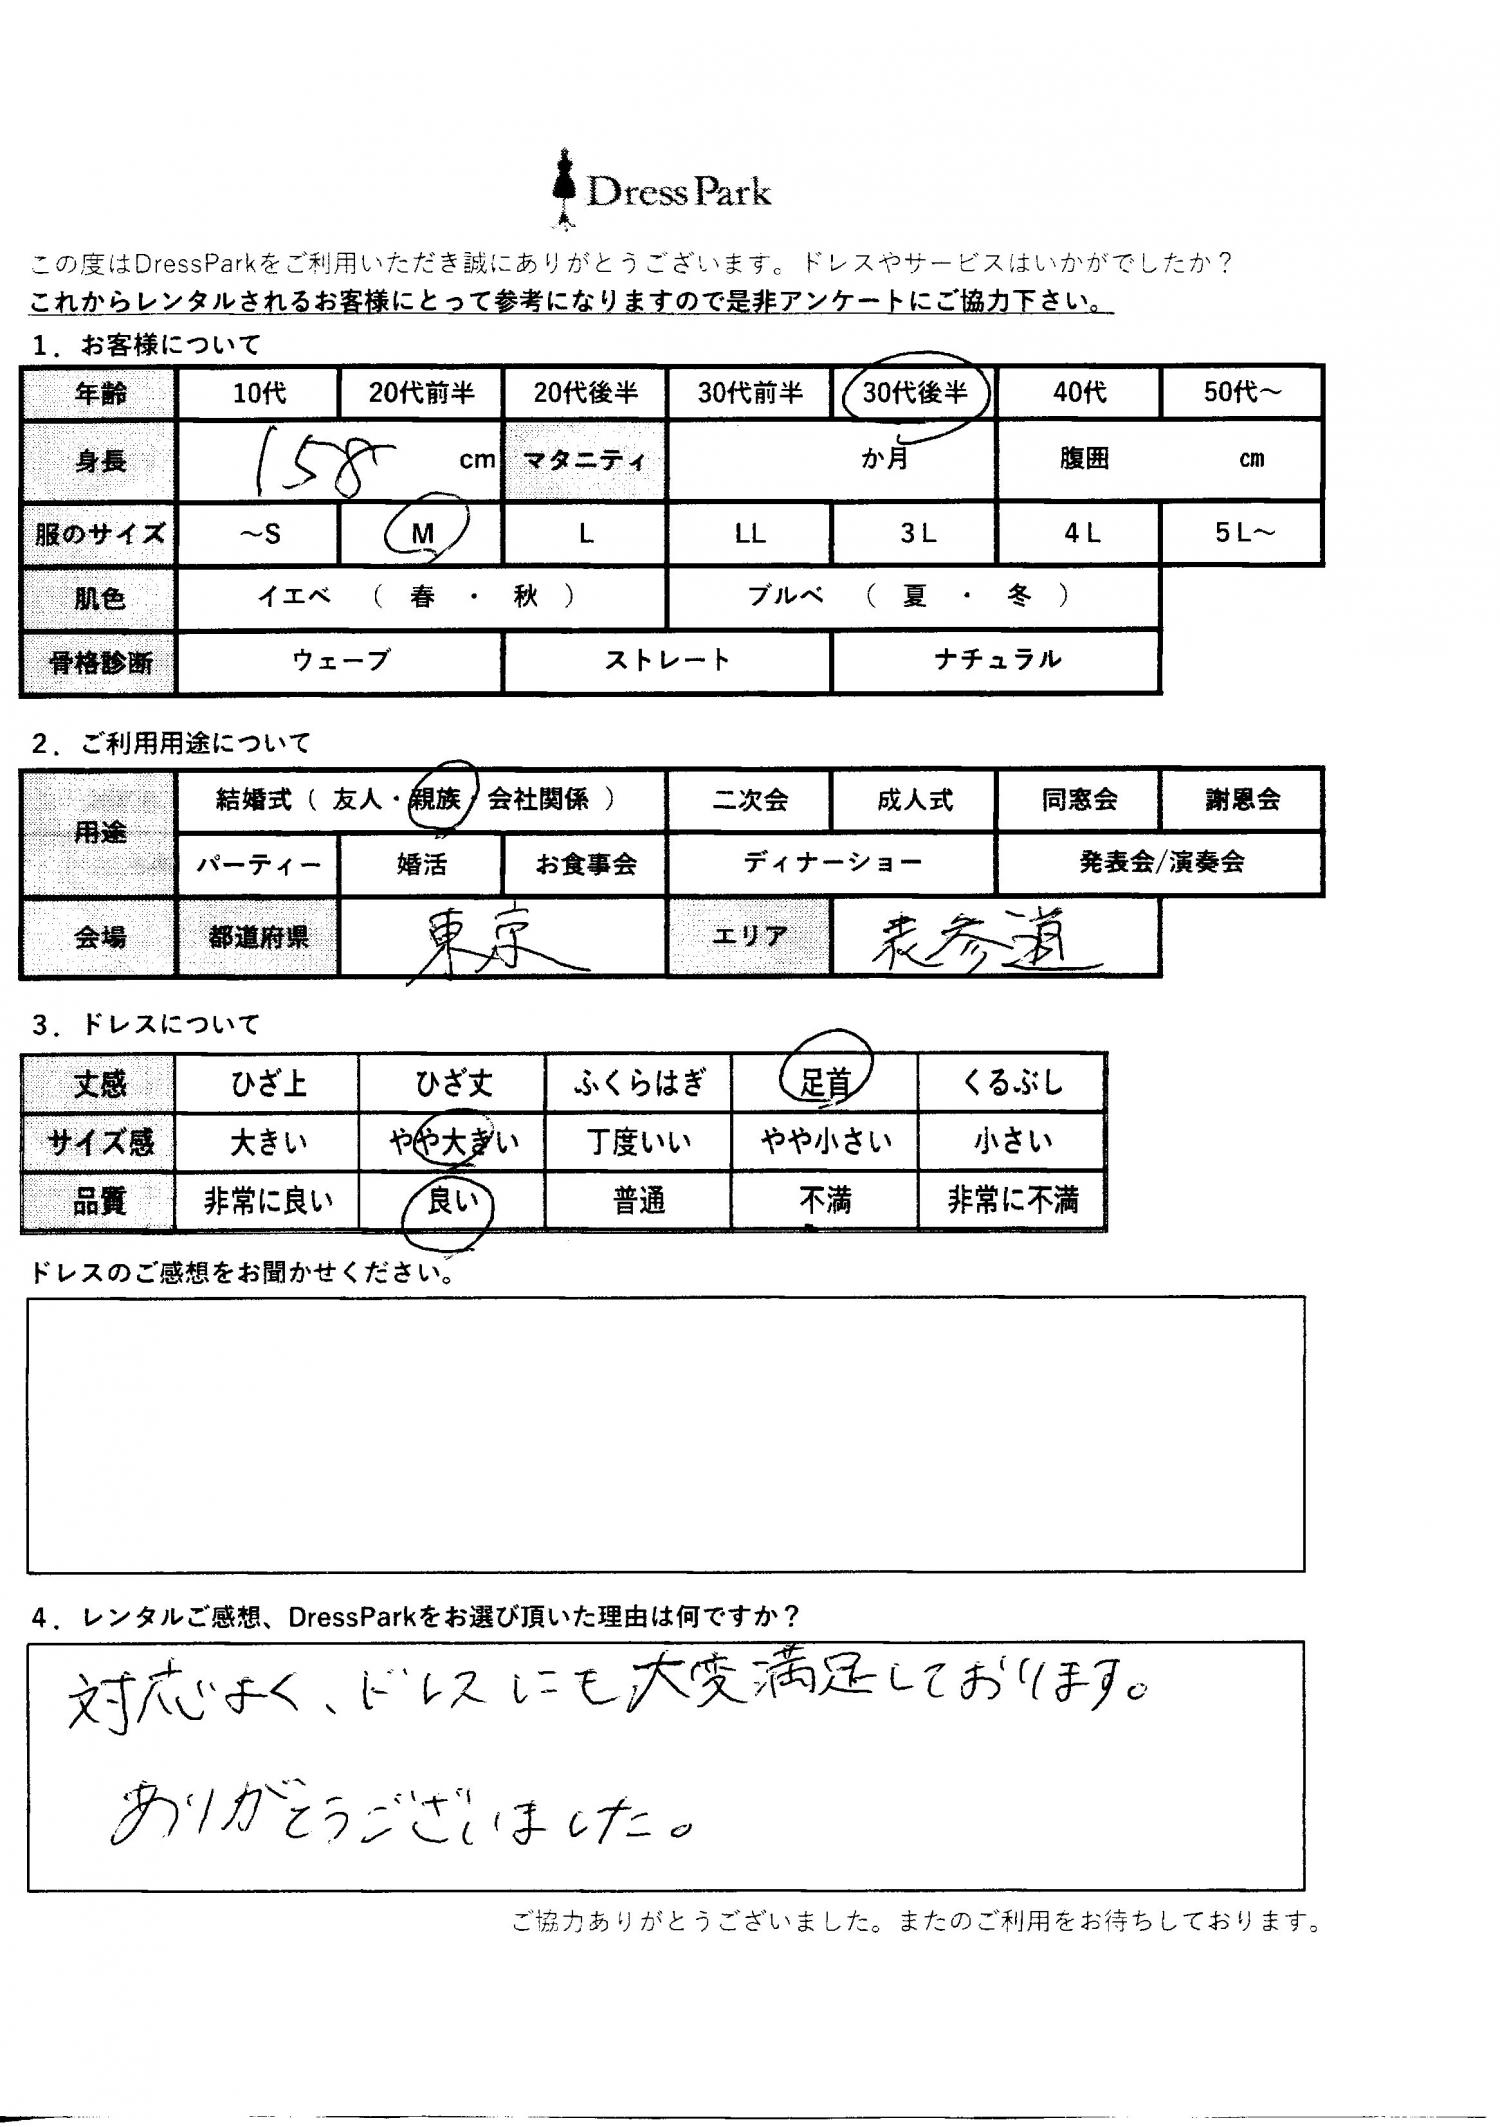 Dress Park
この度はDressParkをご利用いただき誠にありがとうございます。ドレスやサービスはいかがでしたか？
これからレンタルされるお客様にとって参考になりますので是非アンケートにご協力下さい。
1．お客様について
年齢 10代 20代前半 20代後半 30代前半 30代後半 40代 50代～
身長 158 cm マタニティ か月 腹囲 cm
服のサイズ ～S M L LL 3L 4L 5L～
肌色 イエベ （ 春 ・ 秋 ） ブルベ （ 夏 ・ 冬 ）
骨格診断 ウェーブ ストレート ナチュラル
2．ご利用用途について
用途 結婚式（ 友人・親族・会社関係 ） 二次会 成人式 同窓会 謝恩会
パーティー 婚活 お食事会 ディナーショー 発表会/演奏会
会場 都道府県 東京 エリア 表参道
3．ドレスについて
丈感 ひざ上 ひざ丈 ふくらはぎ 足首 くるぶし
サイズ感 大きい やや大きい 丁度いい やや小さい 小さい
品質 非常に良い 良い 普通 不満 非常に不満
ドレスのご感想をお聞かせください。
4．レンタルご感想、DressParkをお選び頂いた理由は何ですか？
対応よく、ドレスにも大変満足しております。
ありがとうございました。
ご協力ありがとうございました。またのご利用をお待ちしております。